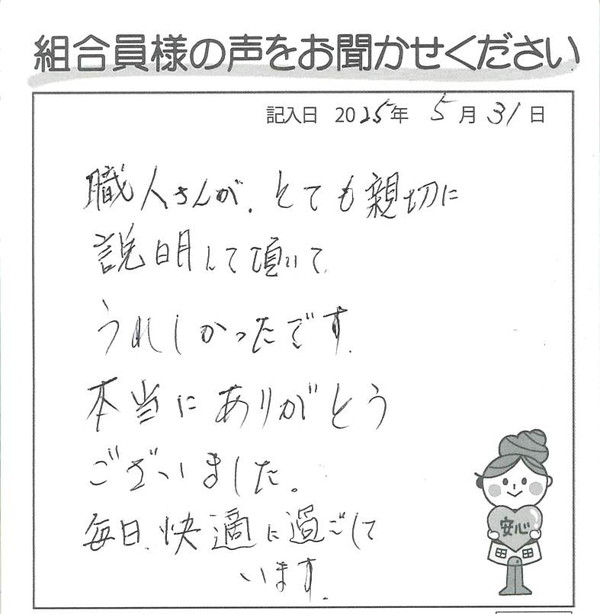 組合員様の声をお聞かせください
記入日 2025年 5月 31日
職人さんが、とても親切に
説明して頂いて
うれしかったです.
本当にありがとう
ございました。
毎日、快適に過ごして
います.
安心